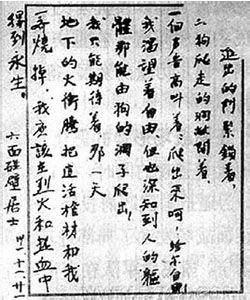 进出的門紧鎖着,
狗爬走的洞敞開着,
一個声音高叫着,爬出来呵!给尔自由
我渴望着自由,但也深知到人的軀
體那能由狗的洞子爬出!
我只能期待着,那一天
地下的火衝騰把這活棺材和我
一齐燒掉,我應該在烈火和热血中
得到永生。
六面碰壁居士 卅一、十一、廿一